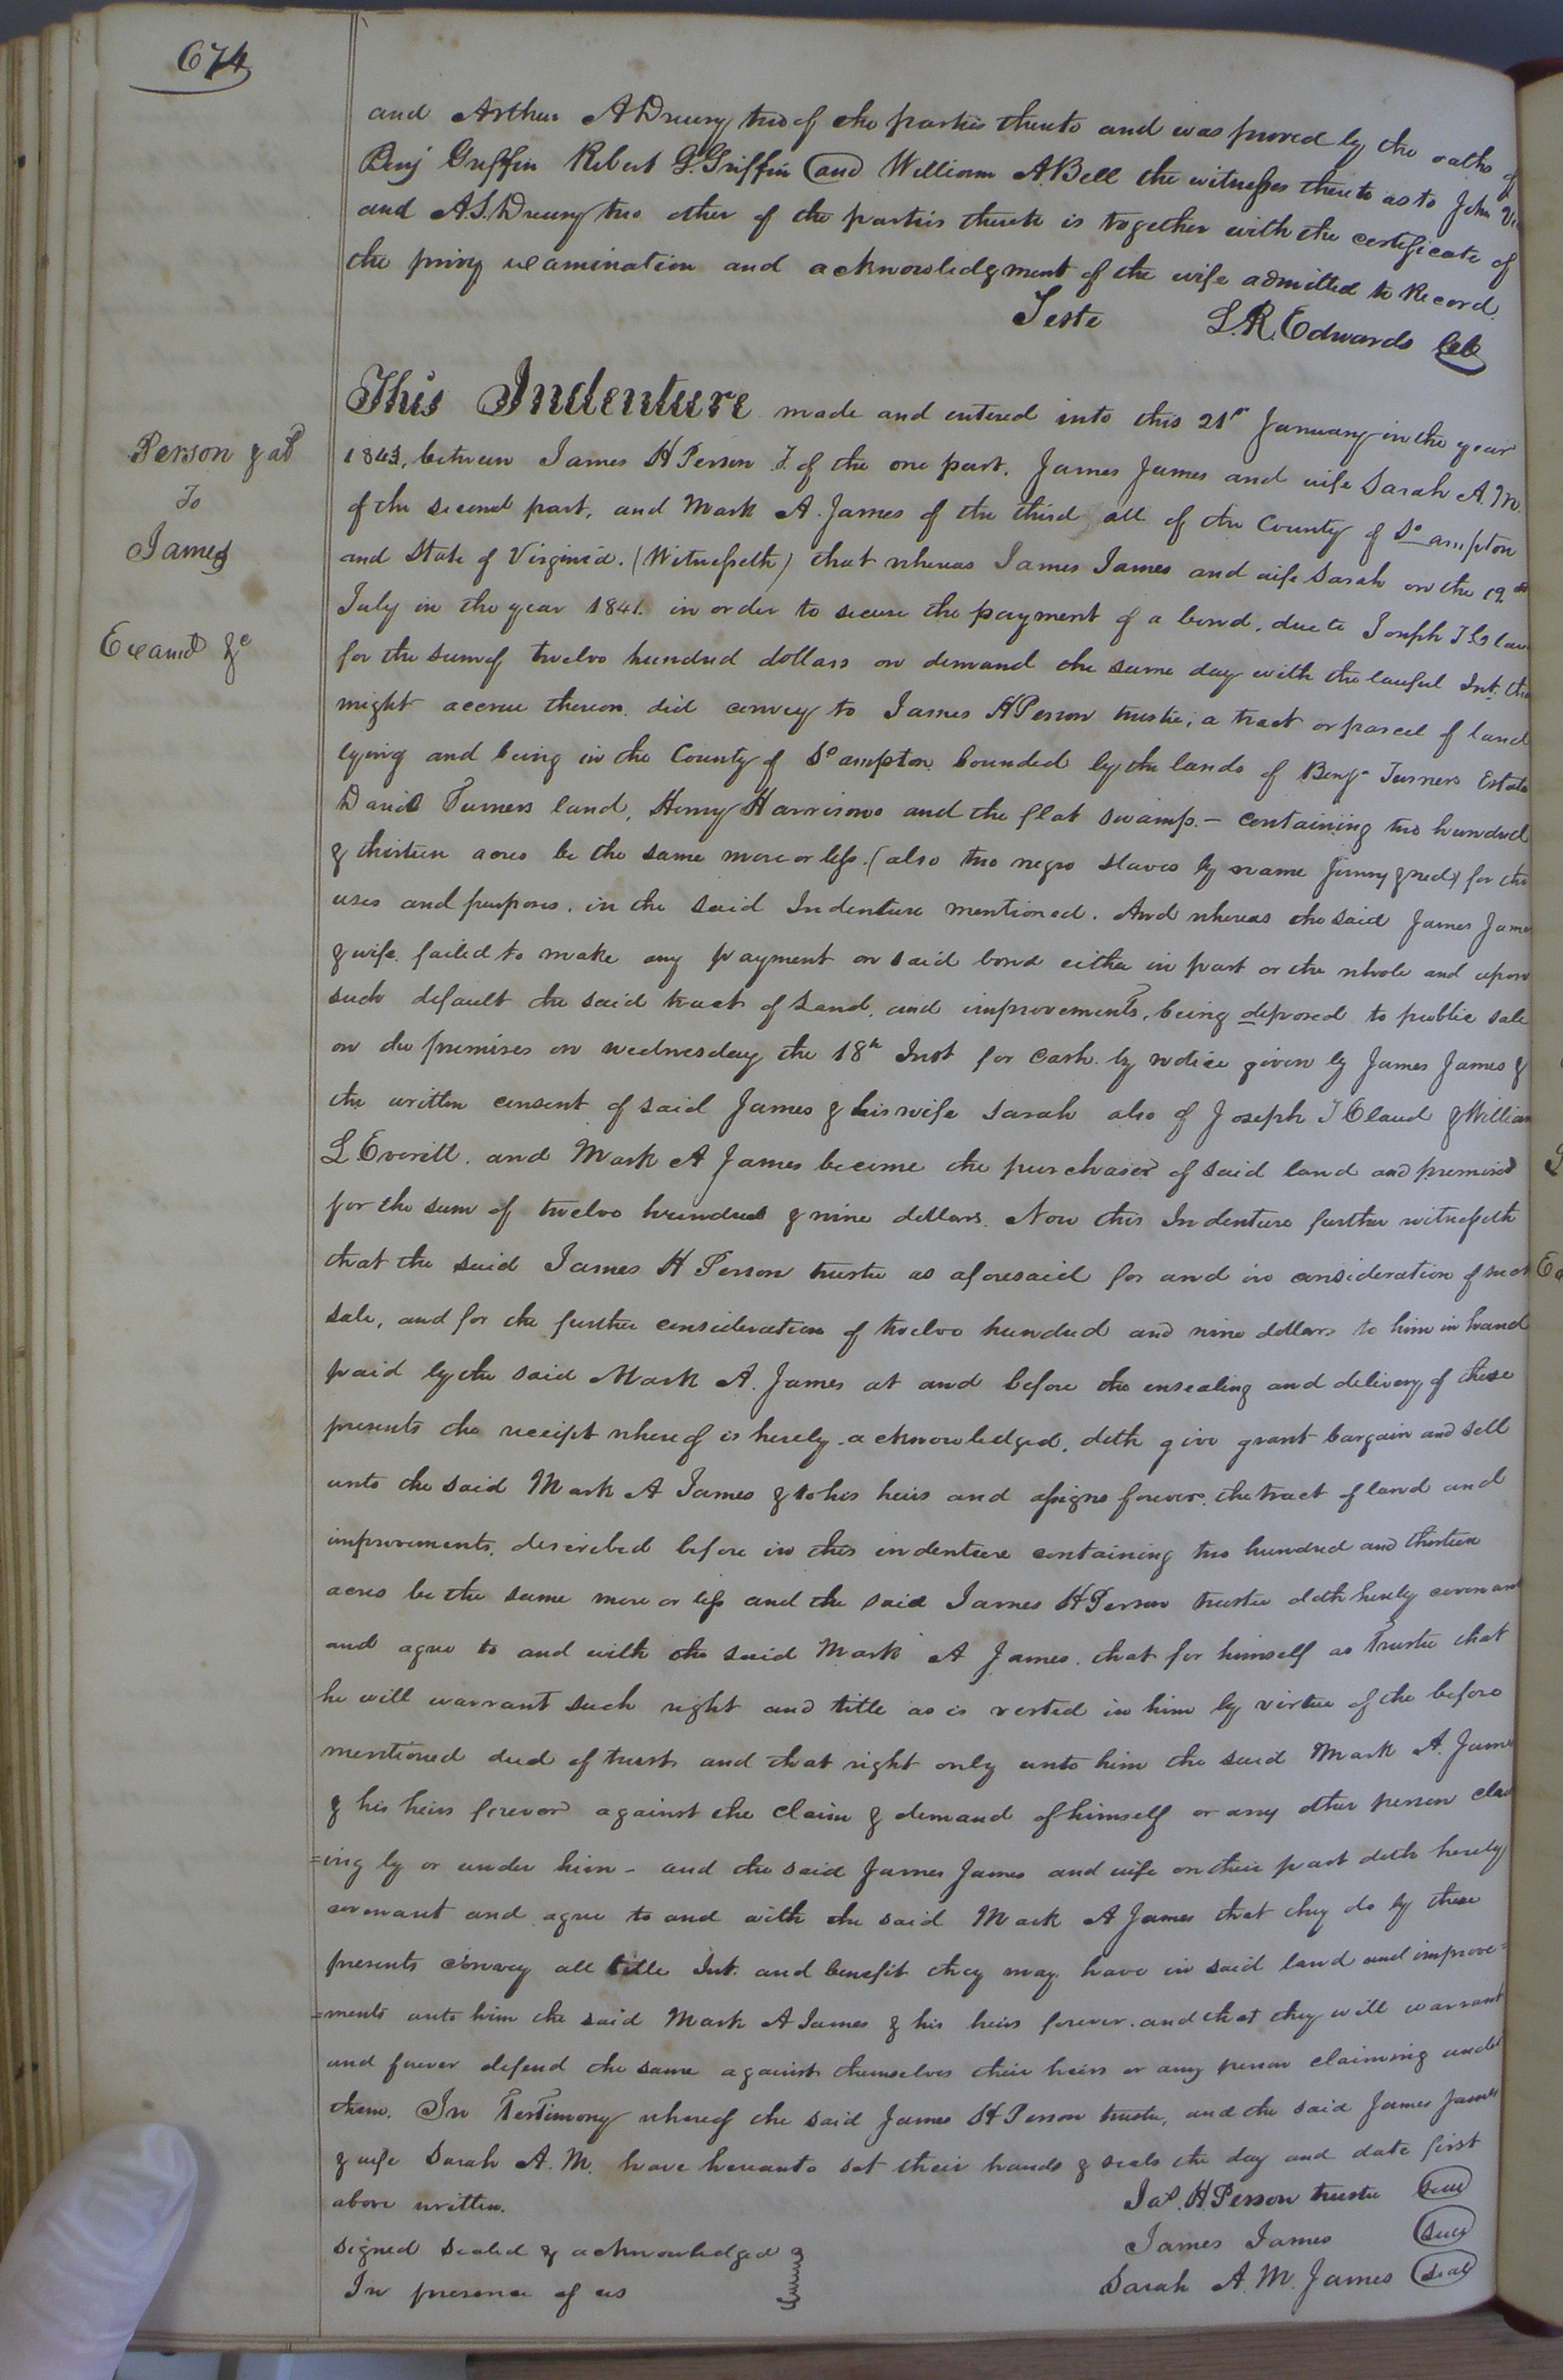 674
and Arthur A Drewry two of the parties thereto and was proved by the oaths of
Benj Griffin Robert G. Griffin and William A. Bell the witnesses thereto as to John
and A.S. Drewry two other of the parties thereto is together with the certificate of
the privy examination and acknowledgment of the wife admitted to Record.
Teste L. R. Edwards
This Indenture made and entered into this 21st January in the year
Person &
To
James
1843, between James H Person T. of the one part, James James and wife Sarah A. M.
of the second part, and Mark A. James of the third all of the County of So ampton
and State of Virginia. (Witnesseth) that whereas James James and wife Sarah on the 19th
July in the year 1841. in order to secure the payment of a bond, due to Joseph T Clau
Examd &c
for the sum of twelve hundred dollars on demand the same day with the lawful Int. tha
might accrue thereon. did convey to James H Person trustee, a tract or parcel of land
lying and being in the County of So ampton bounded by the lands of Benja Turners Estate
David Turners land, Henry Harrisons and the flat swamp. – containing two hundred
& thirteen acres be the same more or less. (also two negro slaves by name Jenny & ned) for the
uses and purposes. in the said Indenture mentioned. And whereas the said James Jame
& wife failed to make any payment on said bond either in part or the whole and upon
such default the said tract of Land, and improvements, being deposed to public sale
on the premises on wednesday the 18h Inst for Cash. by notice given by James James &
the written consent of said James & his wife Sarah also of Joseph T Claud & William
L Everitt. and Mark A James become the purchaser of said land and premises
for the sum of twelve hundred & nine dollars. Now this Indenture further witnesseth
that the said James H Person trustee as aforesaid for and in consideration of such
sale, and for the further consideration of twelve hundred and nine dollars to him in hand
paid by the said Mark A. James at and before the ensealing and delivery of these
presents the receipt whereof is hereby acknowledged, doth give grant bargain and sell
unto the said Mark A James & to his heirs and assigns forever. the tract of land and
improvements. described before in this indenture containing two hundred and thirteen
acres be the same more or less and the said James H Person trustee doth hereby covenant
and agree to and with the said Mark A James. that for himself as Trustee that
he will warrant such right and title as is vested in him by virtue of the before
mentioned deed of trust and that right only unto him the said Mark A. Jame
& his heirs forever against the claim & demand of himself or any other person clai
=ing by or under him – and the said James James and wife on their part doth hereby
covenant and agree to and with the said Mark A James that they do by these
presents convey all title Int. and benefit they may have in said land and improve=
=ments unto him the said Mark A James & his heirs forever. and that they will warrant
and forever defend the same against themselves their heirs or any person claiming under
them. In Testimony whereof the said James H Person trustee, and the said James James
& wife Sarah A. M. have hereunto set their hands & seals the day and date first
above written.
Jas. H. Person trustee Seal
signed sealed & acknowledged
James James Seal
In presence of us
Sarah A. M. James Seal